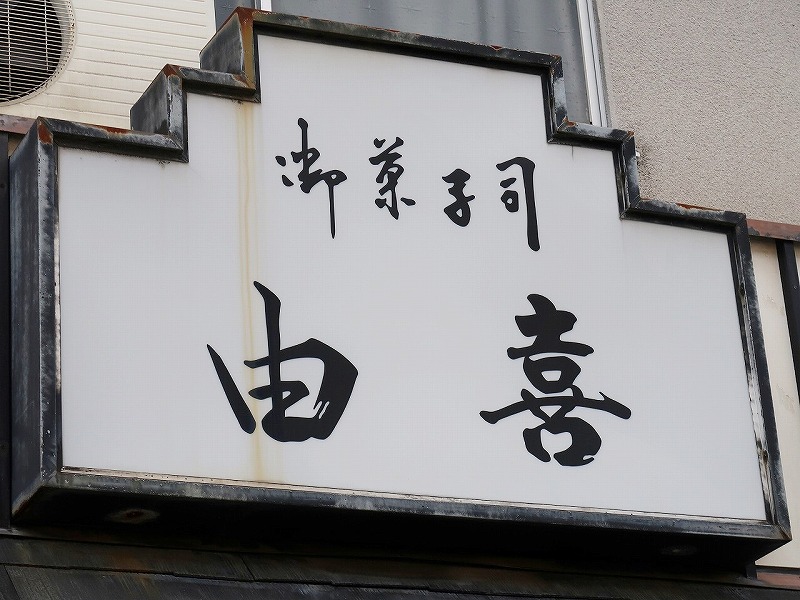 御菓子司
由喜